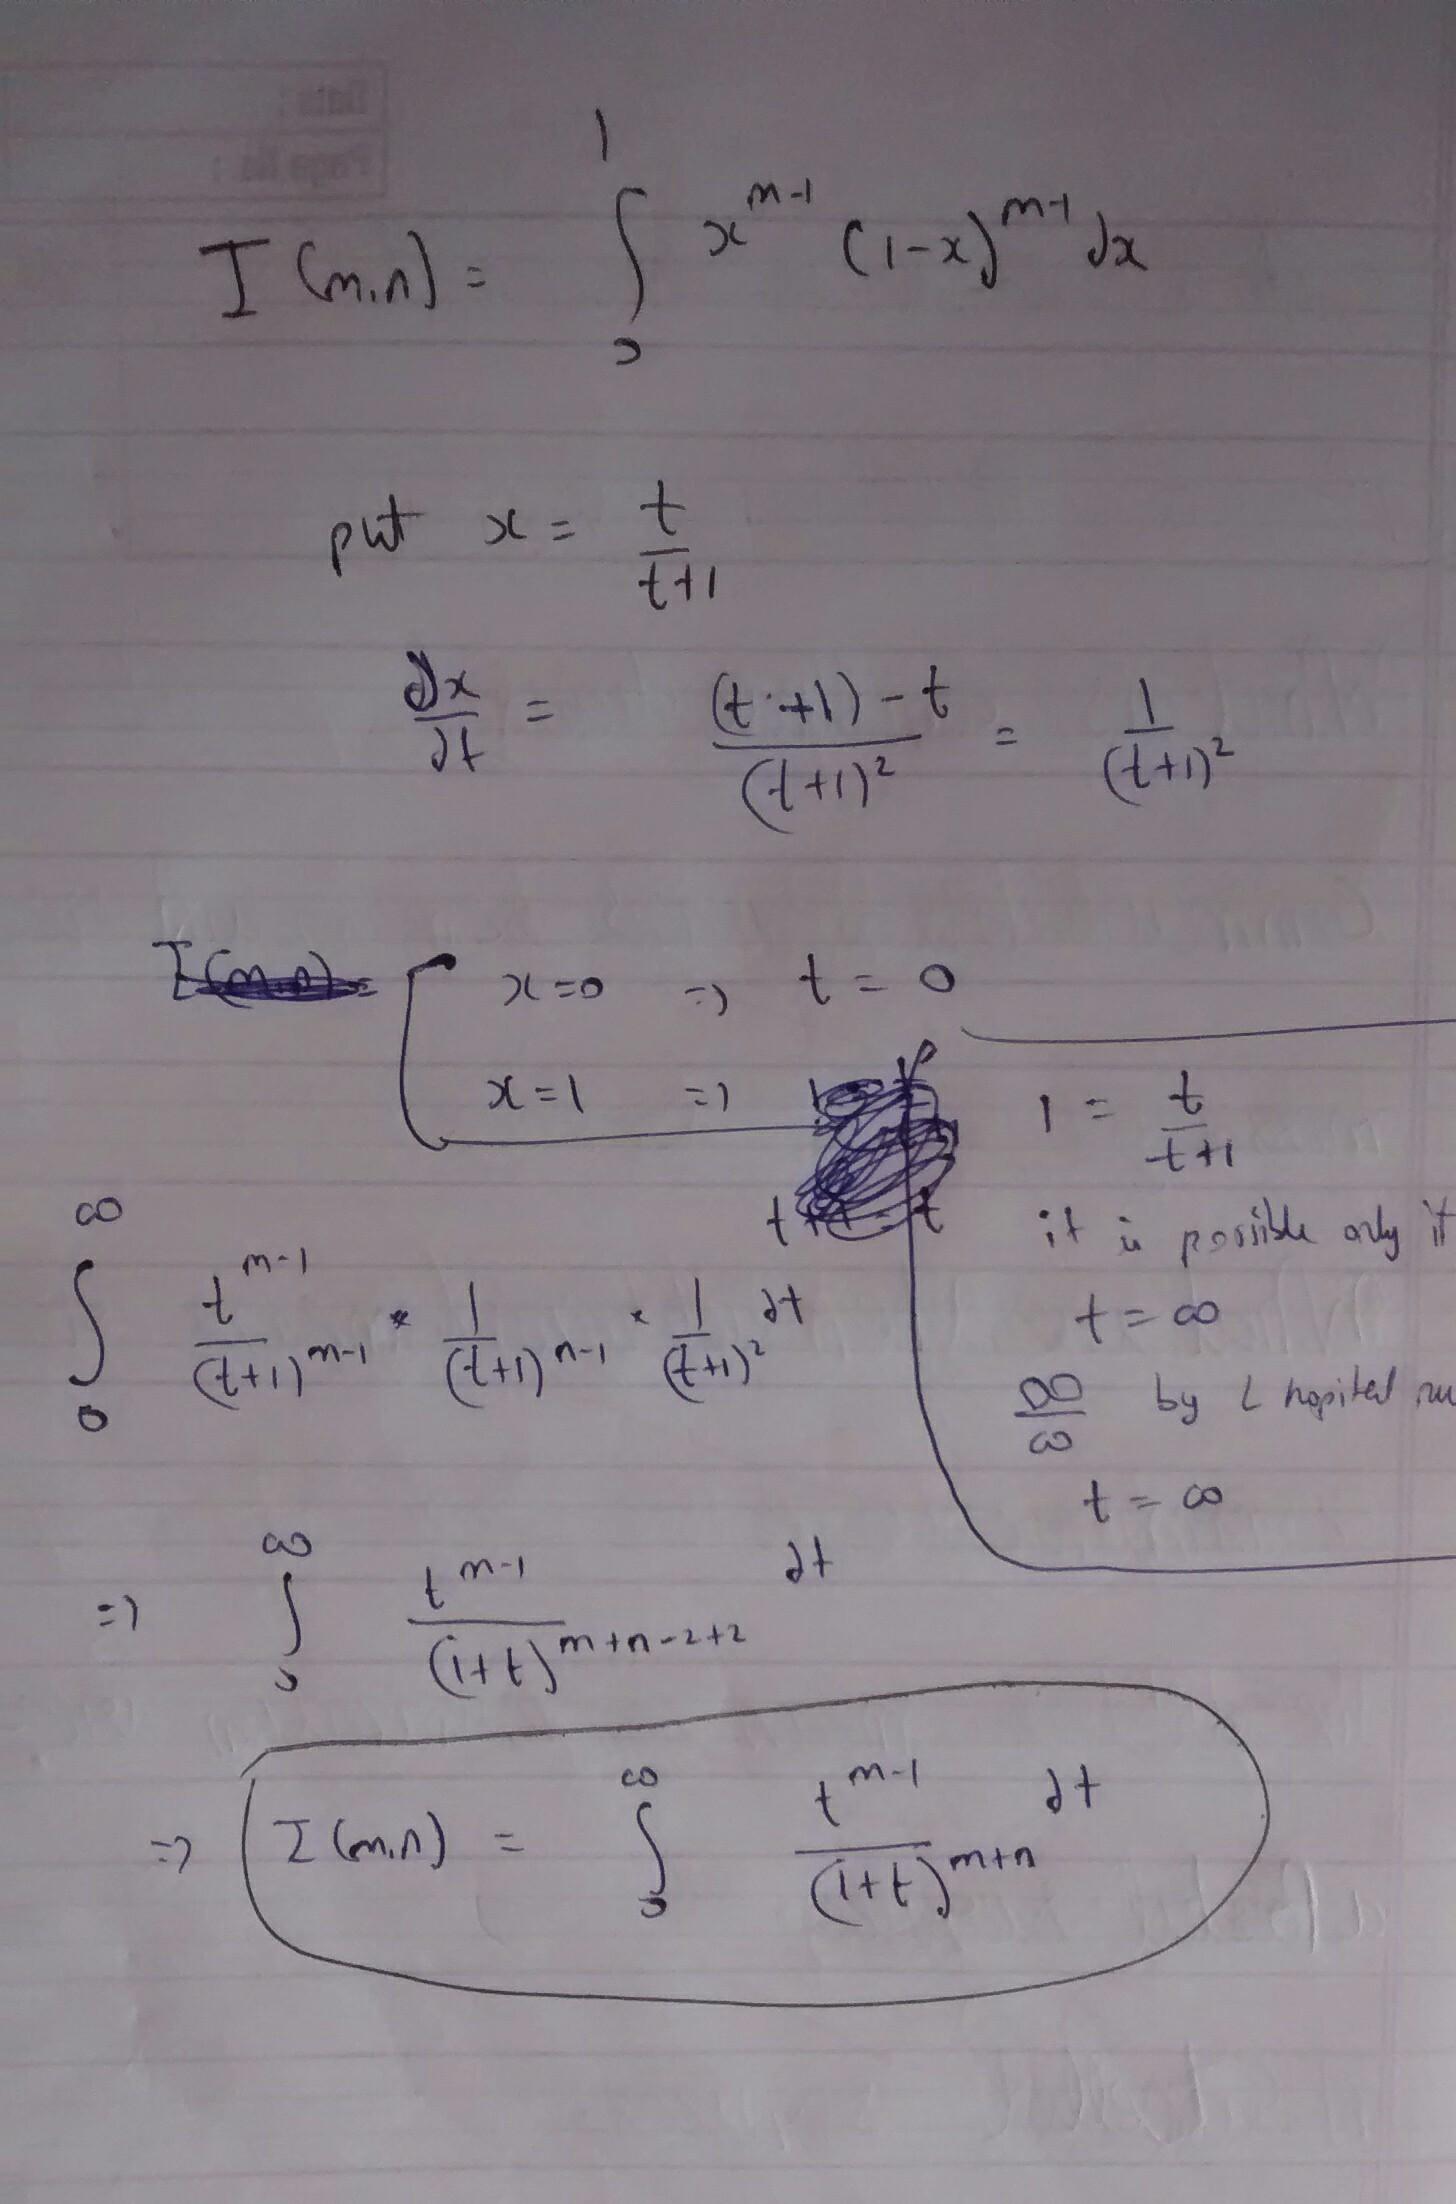 I(m,n) = ∫₀¹ x^{m-1} (1-x)^{m-1} dx
put x = t/(t+1)
dx/dt = ((t+1)-t)/(t+1)² = 1/(t+1)²
x=0 => t=0
x=1 =>
1 = t/(t+1)
it is possible only if
t=∞
∞/∞ by L hopital
t=∞
∫₀^∞ t^{m-1}/(t+1)^{m-1} * 1/(t+1)^{n-1} * 1/(t+1)² dt
=> ∫₀^∞ t^{m-1}/(1+t)^{m+n-2+2} dt
=> I(m,n) = ∫₀^∞ t^{m-1}/(1+t)^{m+n} dt